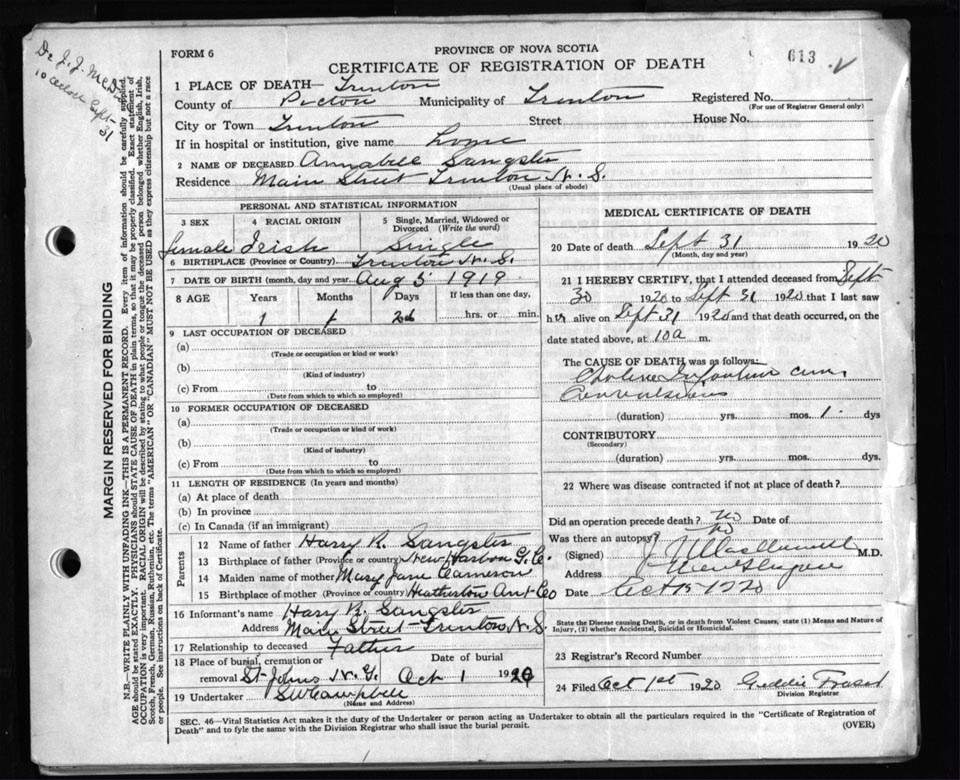 Dr. J. J. McD
10 oclock Sept
31
MARGIN RESERVED FOR BINDING
N.B.—WRITE PLAINLY WITH UNFADING INK—THIS IS A PERMANENT RECORD. Every item of information should be carefully supplied.
AGE should be stated EXACTLY. PHYSICIANS should STATE CAUSE OF DEATH in plain terms, so that it may be properly classified. Exact statement of
OCCUPATION is very important. RACIAL ORIGIN will be described by stating to what people or tongue the deceased person belonged whether English, Irish,
Scotch, French, German, Russian, Ruthenian, etc. The terms "AMERICAN" OR "CANADIAN" MUST NOT BE USED as they express citizenship but not a race
or people. See instructions on back of Certificate.
FORM 6
PROVINCE OF NOVA SCOTIA
613
CERTIFICATE OF REGISTRATION OF DEATH
1 PLACE OF DEATH— Trenton
County of Pictou Municipality of Trenton Registered No.
(For use of Registrar General only)
City or Town Trenton Street House No.
If in hospital or institution, give name Home
2 NAME OF DECEASED Annabell Sangster
Residence Main Street Trenton N. S.
(Usual place of abode)
PERSONAL AND STATISTICAL INFORMATION
3 SEX 4 RACIAL ORIGIN 5 Single, Married, Widowed or Divorced (Write the word)
female Irish Single
6 BIRTHPLACE (Province or Country) Trenton N. S.
7 DATE OF BIRTH (month, day and year) Aug 5 1919
8 AGE Years Months Days If less than one day,
1 1 26 hrs. or min.
9 LAST OCCUPATION OF DECEASED
(a)
(Trade or occupation or kind or work)
(b)
(Kind of industry)
(c) From to
(Date from which to which so employed)
10 FORMER OCCUPATION OF DECEASED
(a)
(Trade or occupation or kind of work)
(b)
(Kind of industry)
(c) From to
(Date from which to which so employed)
11 LENGTH OF RESIDENCE (In years and months)
(a) At place of death
(b) In province
(c) In Canada (if an immigrant)
Parents
12 Name of father Harry R. Sangster
13 Birthplace of father (Province or country) New Harbor G. Co.
14 Maiden name of mother Mary Jane Cameron
15 Birthplace of mother (Province or country) Heatherton Ant Co
16 Informant's name Harry R. Sangster
Address Main Street Trenton N. S
17 Relationship to deceased Father
18 Place of burial, cremation or Date of burial
removal St Johns N. G. Oct 1 1920
19 Undertaker S W Campbell
(Name and Address)
MEDICAL CERTIFICATE OF DEATH
20 Date of death Sept 31 1920
(Month, day and year)
21 I HEREBY CERTIFY, that I attended deceased from Sept
30 1920 to Sept 31 1920 that I last saw
h alive on Sept 31 1920 and that death occurred, on
date stated above, at 10 a m.
The CAUSE OF DEATH was as follows:
Cholera Infantum cum
Convulsions
(duration) yrs. mos. 1 dys
CONTRIBUTORY
(Secondary)
(duration) yrs. mos. dys.
22 Where was disease contracted if not at place of death?
Did an operation precede death? No Date of
Was there an autopsy? No
(Signed) M.D.
Address New Glasgow
Date Oct 1920
State the Disease causing Death, or in death from Violent Causes, state (1) Means and Nature of
Injury, (2) whether Accidental, Suicidal or Homicidal.
23 Registrar's Record Number
24 Filed Oct 1st 1920 Fraser
Division Registrar
SEC. 46—Vital Statistics Act makes it the duty of the Undertaker or person acting as Undertaker to obtain all the particulars required in the "Certificate of Registration of
Death" and to fyle the same with the Division Registrar who shall issue the burial permit. (OVER)